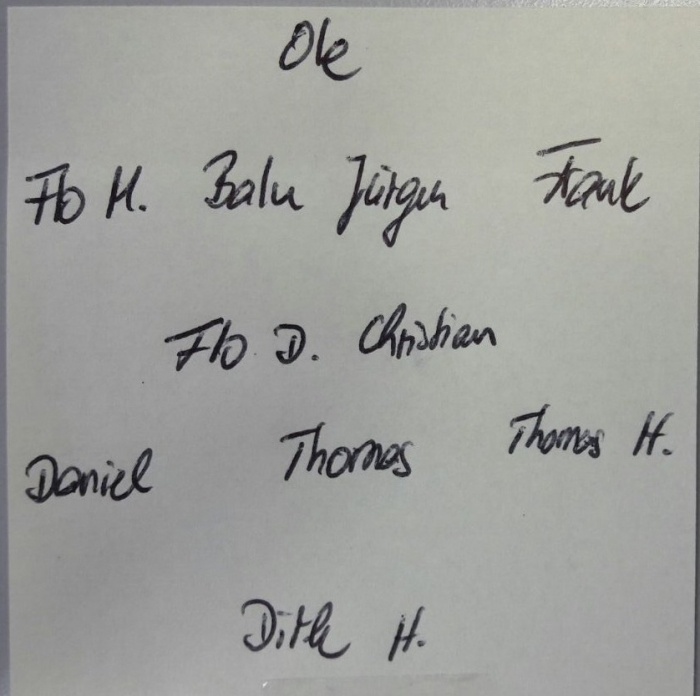 Ole
Flo M. Balu Jürgen Frank
Flo D. Christian
Daniel Thomas Thomas H.
H.